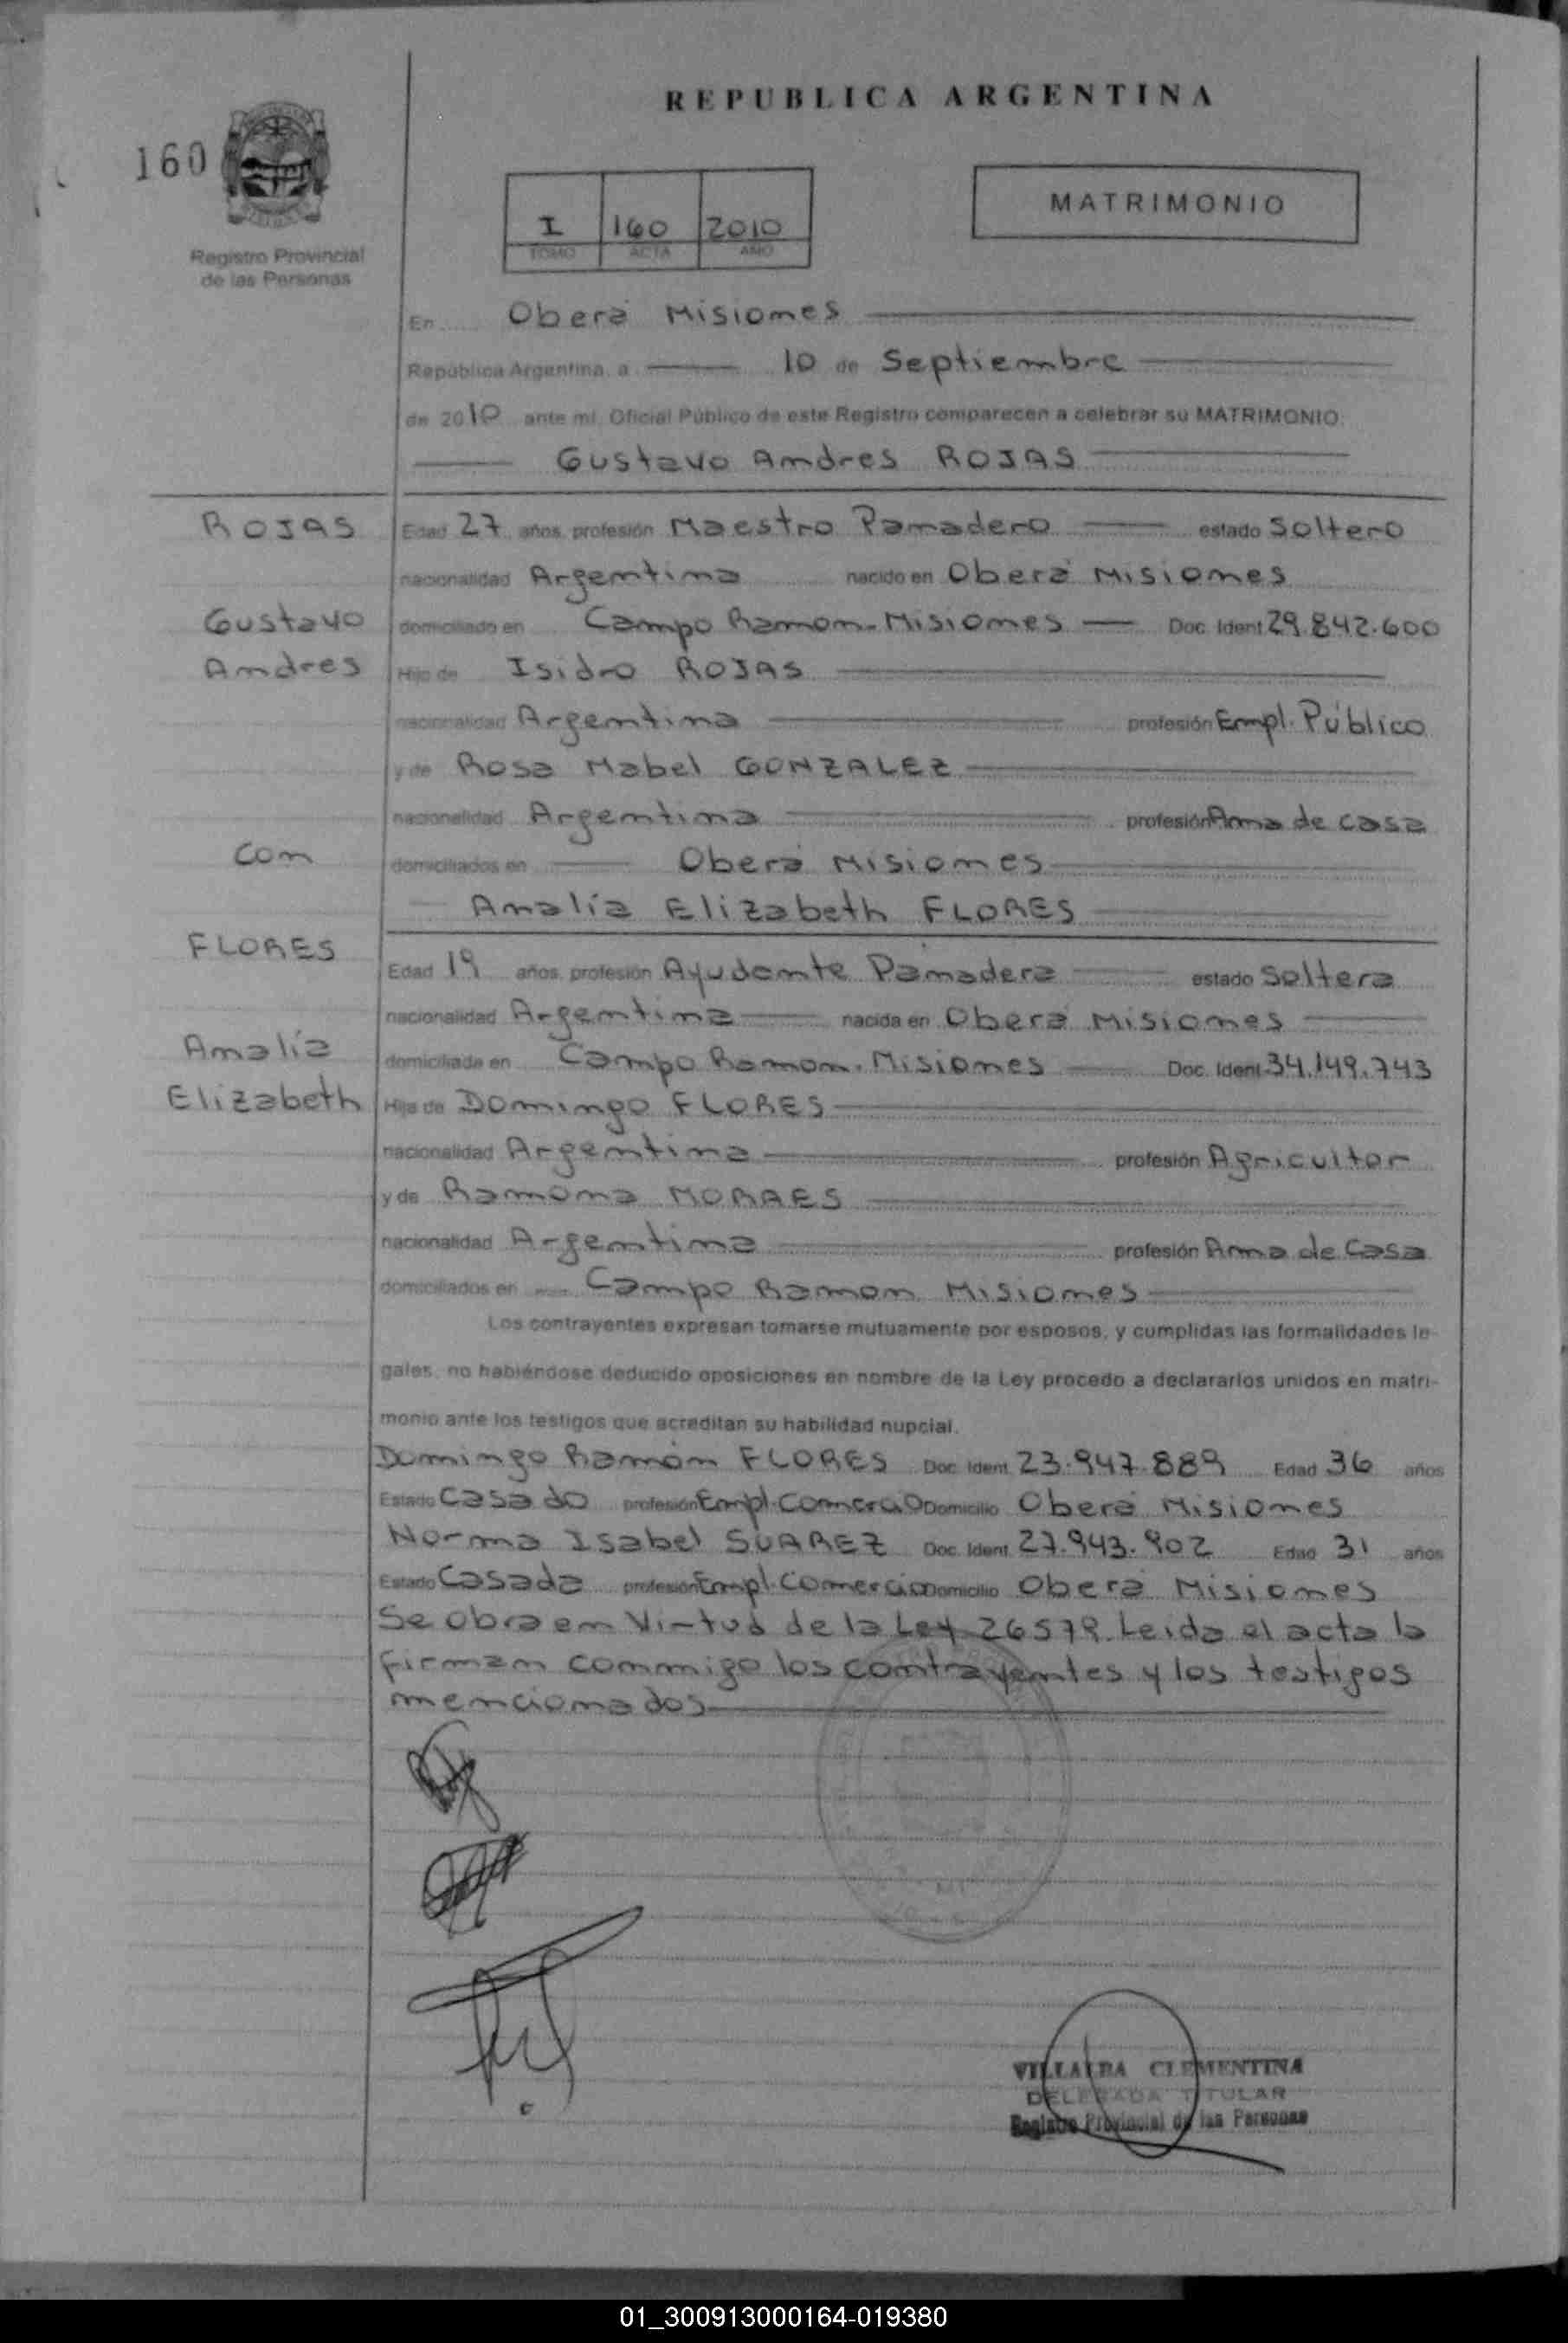 REPUBLICA ARGENTINA
160
MATRIMONIO
I 160 2010
TOMO ACTA AÑO
Registro Provincial
de las Personas
En Oberá Misiones
República Argentina, a 10 de Septiembre
de 2010 ante mi, Oficial Público de este Registro comparecen a celebrar su MATRIMONIO:
Gustavo Andres ROJAS
ROJAS
Edad 27 años, profesión Maestro Panadero estado Soltero
nacionalidad Argentina nacido en Oberá Misiones
Gustavo
domiciliado en Campo Ramon-Misiones Doc. Ident 29.842.600
Andres
Hijo de Isidro ROJAS
nacionalidad Argentina profesión Empl. Público
y de Rosa Mabel GONZALEZ
nacionalidad Argentina profesión Ama de casa
Con
domiciliados en Oberá Misiones
Analía Elizabeth FLORES
FLORES
Edad 19 años, profesión Ayudante Panadera estado Soltera
nacionalidad Argentina nacida en Oberá Misiones
Analía
domiciliada en Campo Ramon-Misiones Doc. Ident 34.149.743
Elizabeth
Hija de Domingo FLORES
nacionalidad Argentina profesión Agricultor
y de Ramona MORAES
nacionalidad Argentina profesión Ama de Casa
domiciliados en Campo Ramon Misiones
Los contrayentes expresan tomarse mutuamente por esposos, y cumplidas las formalidades le-
gales, no habiéndose deducido oposiciones en nombre de la Ley procedo a declararlos unidos en matri-
monio ante los testigos que acreditan su habilidad nupcial.
Domingo Ramón FLORES Doc. Ident 23.947.889 Edad 36 años
Estado Casado profesión Empl. Comercio Domicilio Oberá Misiones
Norma Isabel SUAREZ Doc. Ident 27.943.902 Edad 31 años
Estado Casada profesión Empl. Comercio Domicilio Oberá Misiones
Se obra en Virtud de la Ley 26579. Leida el acta la
firman conmigo los contrayentes y los testigos
mencionados
VILLALBA CLEMENTINA
DELEGADA TITULAR
Registro Provincial de las Personas
01_300913000164-019380